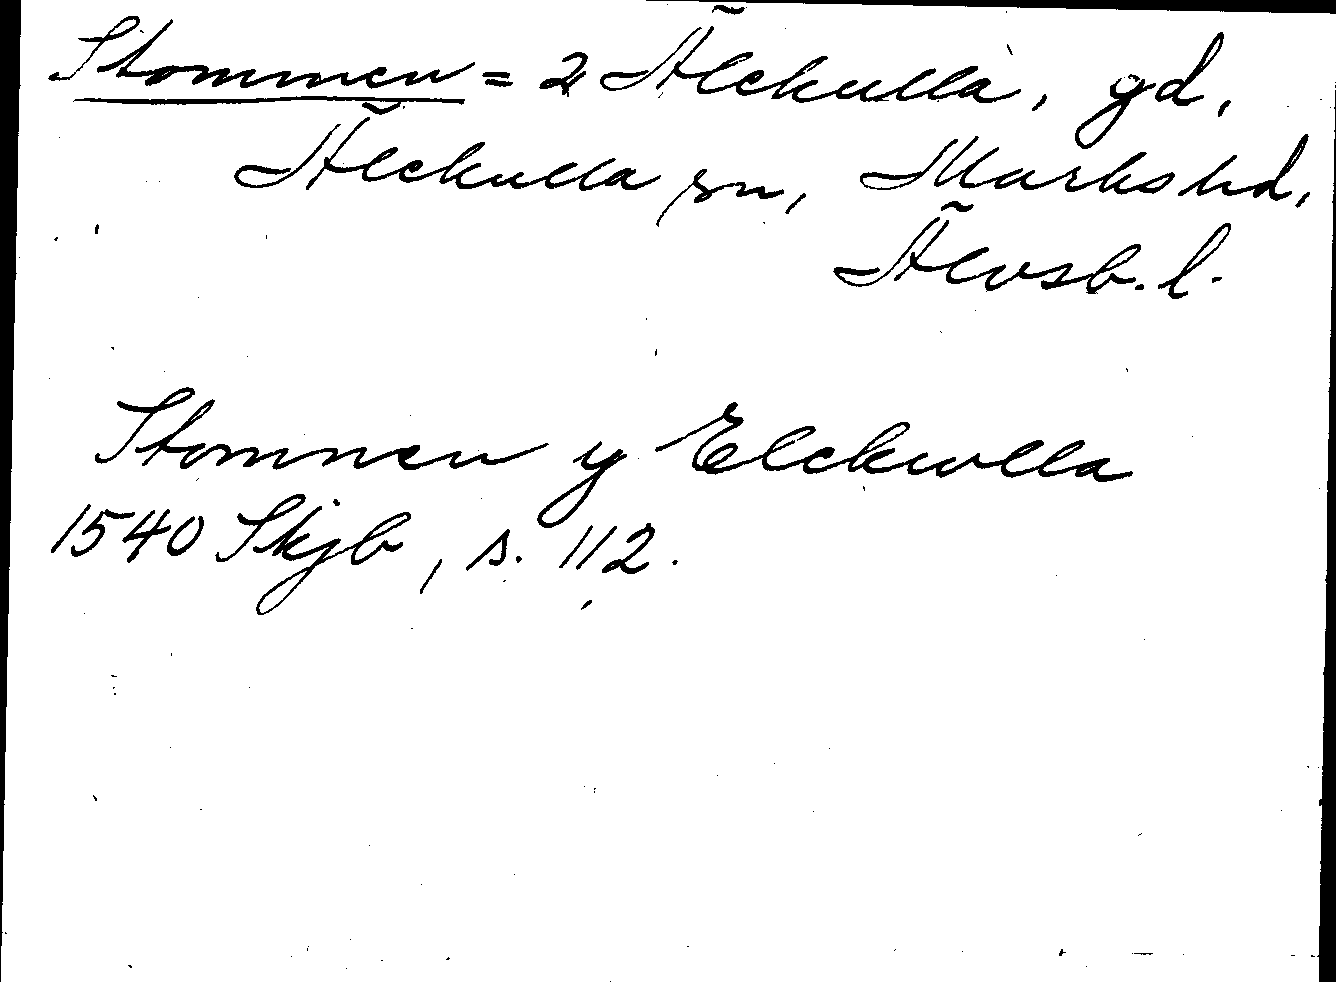 Stommen = 2 Älekulla, gd,
Älekulla sn, Marks hd,
Älvsb. l.
Stommen y Elekwlla
1540 Skjb, s. 112.